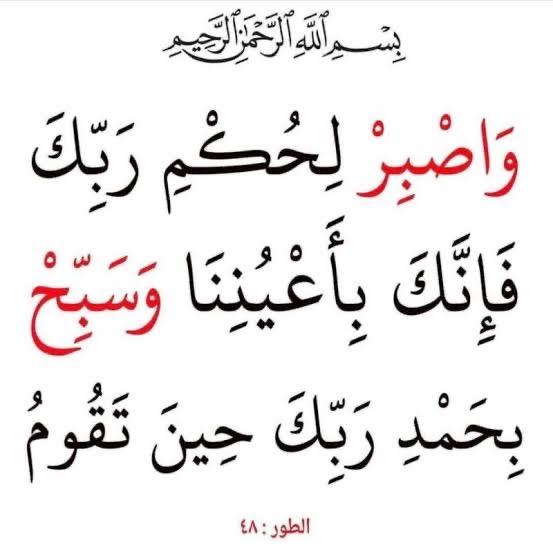 بِسْمِ اللَّهِ الرَّحْمَٰنِ الرَّحِيمِ
وَاصْبِرْ لِحُكْمِ رَبِّكَ
فَإِنَّكَ بِأَعْيُنِنَا وَسَبِّحْ
بِحَمْدِ رَبِّكَ حِينَ تَقُومُ
الطور : ٤٨